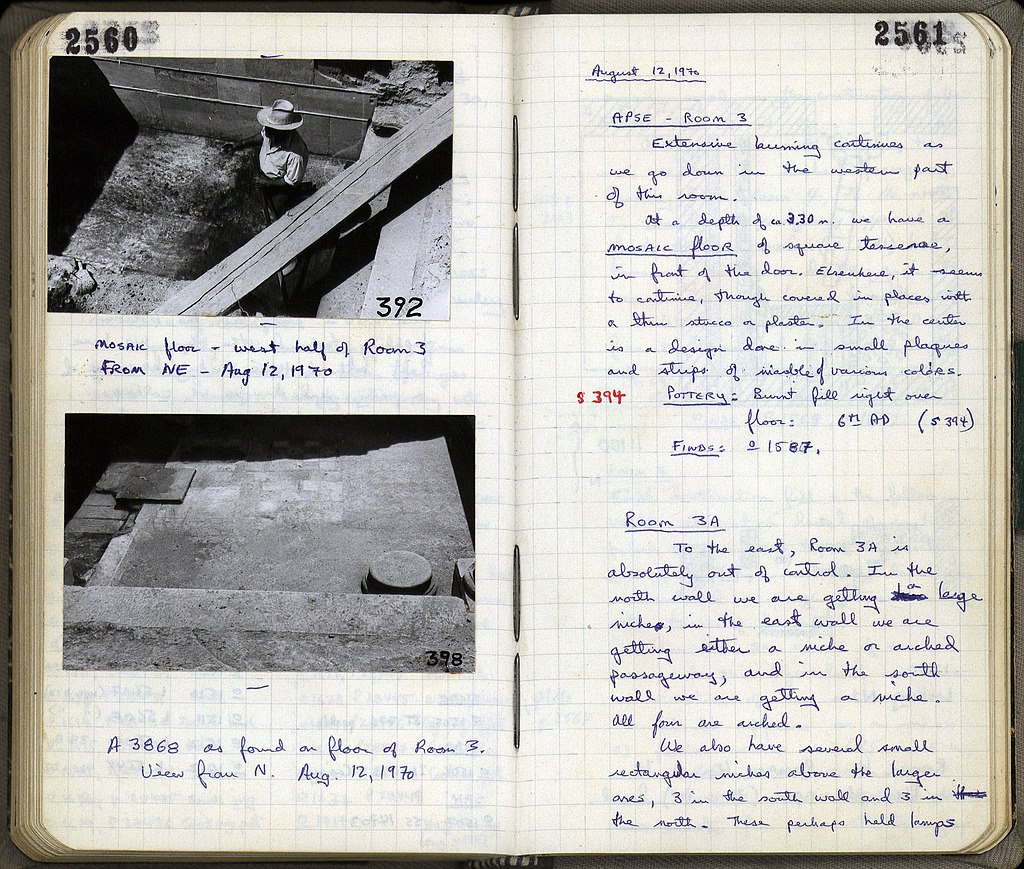 2560
392
MOSAIC floor - west half of Room 3
FROM NE - Aug 12, 1970
398
A 3868 as found on floor of Room 3.
View from N. Aug. 12, 1970
2561
August 12, 1970
APSE - ROOM 3
Extensive burning continues as
we go down in the western part
of this room.
At a depth of ca 3.30 m. we have a
MOSAIC FLOOR of square tesserae,
in front of the door. Elsewhere, it seems
to continue, though covered in places with
a thin stucco or plaster. In the center
is a design done in small plaques
and strips of marble of various colors.
§ 394 POTTERY: Burnt fill right over
floor: 6th AD (§ 394)
FINDS: 1587.
Room 3A
To the east, Room 3A is
absolutely out of control. In the
north wall we are getting a large
niche, in the east wall we are
getting either a niche or arched
passageway, and in the south
wall we are getting a niche.
All four are arched.
We also have several small
rectangular niches above the larger
ones, 3 in the south wall and 3 in
the north. These perhaps held lamps